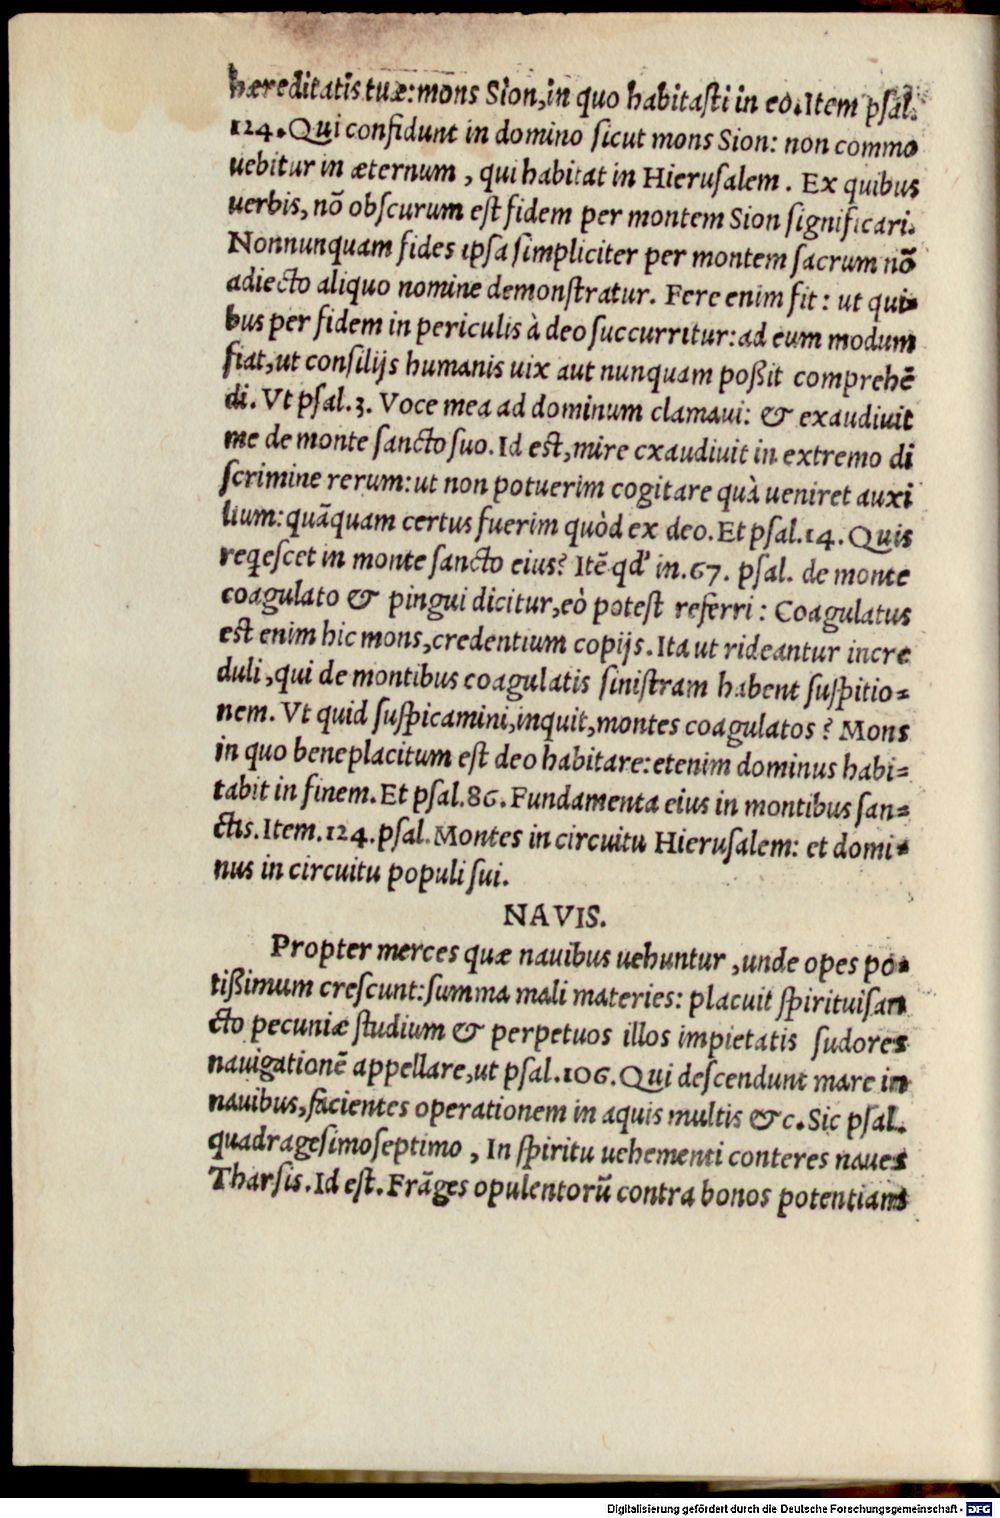 hæreditatis tuæ: mons Sion, in quo habitaſti in eo. Item pſal.
124. Qui confidunt in domino ſicut mons Sion: non commo
uebitur in æternum, qui habitat in Hieruſalem. Ex quibus
uerbis, nõ obſcurum eſt fidem per montem Sion ſignificari.
Nonnunquam fides ipſa ſimpliciter per montem ſacrum nõ
adiecto aliquo nomine demonſtratur. Fere enim fit: ut qui-
bus per fidem in periculis à deo ſuccurritur: ad eum modum
fiat, ut conſilijs humanis uix aut nunquam poßit comprehẽ
di. Vt pſal.3. Voce mea ad dominum clamaui: & exaudiuit
me de monte ſancto ſuo. Id eſt, mire cxaudiuit in extremo di
ſcrimine rerum: ut non potuerim cogitare quà ueniret auxi
lium: quãquam certus fuerim quòd ex deo. Et pſal.14. Quis
reqeſcet in monte ſancto eius? Itẽ qd' in.67. pſal. de monte
coagulato & pingui dicitur, eò poteſt referri: Coagulatus
eſt enim hic mons, credentium copijs. Ita ut rideantur incre
duli, qui de montibus coagulatis ſiniſtram habent ſuſpitio=
nem. Vt quid ſuſpicamini, inquit, montes coagulatos? Mons
in quo beneplacitum eſt deo habitare: etenim dominus habi=
tabit in finem. Et pſal.86. Fundamenta eius in montibus ſan=
ctis. Item.124. pſal. Montes in circuitu Hieruſalem: et domi=
nus in circuitu populi ſui.
NAVIS.
Propter merces quæ nauibus uehuntur, unde opes po=
tißimum creſcunt: ſumma mali materies: placuit ſpirituiſan
cto pecuniæ ſtudium & perpetuos illos impietatis ſudores
nauigationẽ appellare, ut pſal.106. Qui deſcendunt mare in
nauibus, facientes operationem in aquis multis &c. Sic pſal.
quadrageſimoſeptimo, In ſpiritu uehementi conteres naues
Tharſis. Id eſt. Frãges opulentorũ contra bonos potentiam
Digitalisierung gefördert durch die Deutsche Forschungsgemeinschaft - DFG